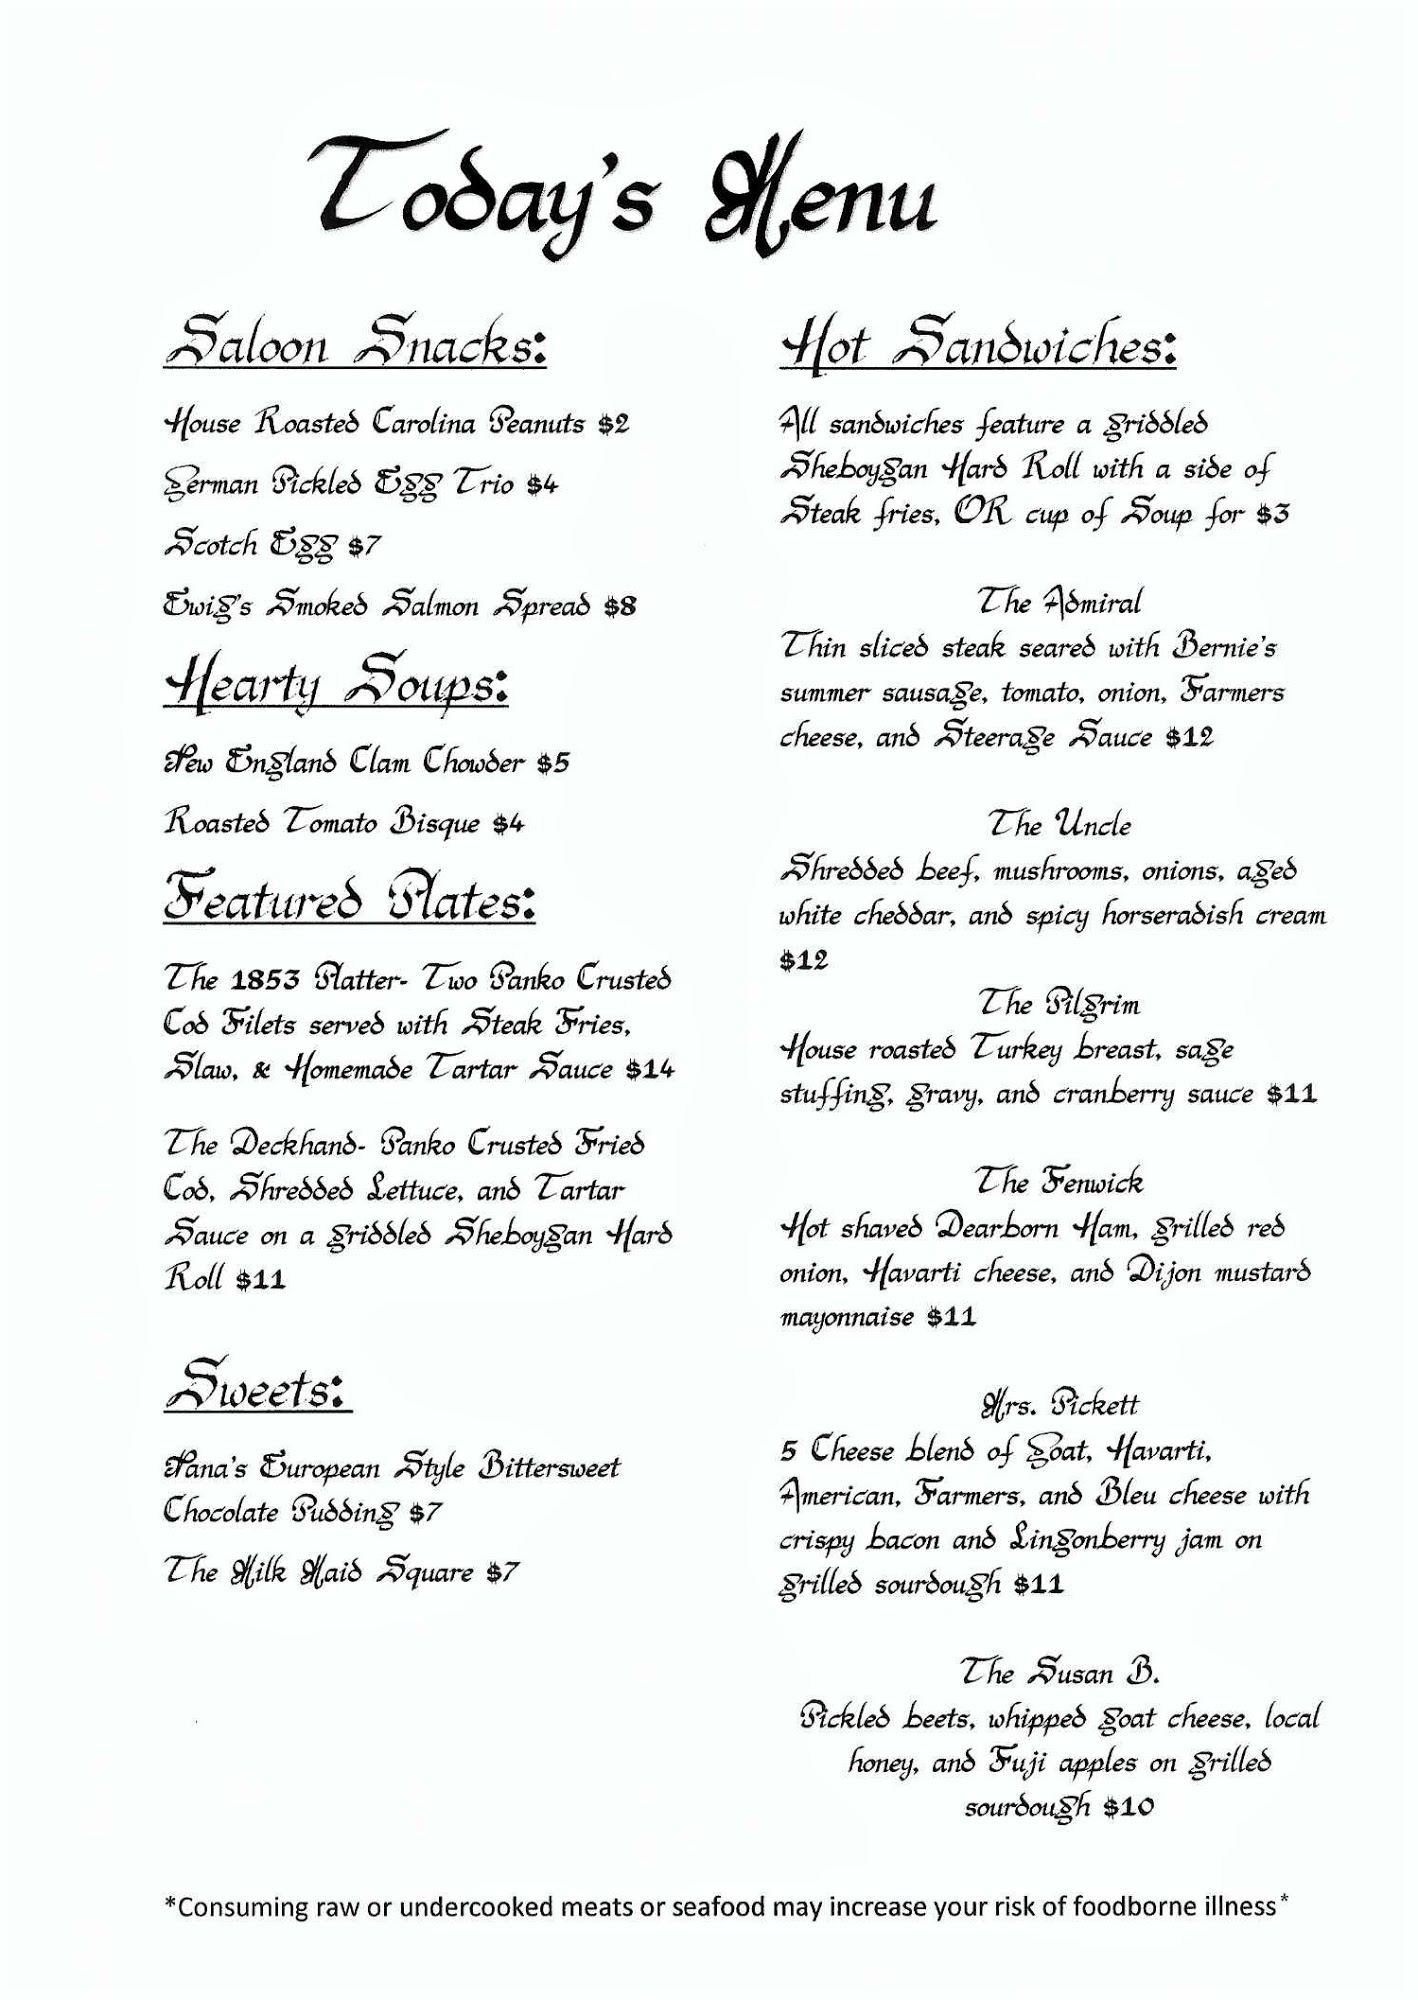 Today's Menu
Saloon Snacks:
House Roasted Carolina Peanuts $2
German Pickled Egg Trio $4
Scotch Egg $7
Ewig's Smoked Salmon Spread $8
Hearty Soups:
New England Clam Chowder $5
Roasted Tomato Bisque $4
Featured Plates:
The 1853 Platter- Two Panko Crusted
Cod Filets served with Steak Fries,
Slaw, & Homemade Tartar Sauce $14
The Deckhand- Panko Crusted Fried
Cod, Shredded Lettuce, and Tartar
Sauce on a griddled Sheboygan Hard
Roll $11
Sweets:
Nana's European Style Bittersweet
Chocolate Pudding $7
The Milk Maid Square $7
Hot Sandwiches:
All sandwiches feature a griddled
Sheboygan Hard Roll with a side of
Steak fries, OR cup of Soup for $3
The Admiral
Thin sliced steak seared with Bernie's
summer sausage, tomato, onion, Farmers
cheese, and Steerage Sauce $12
The Uncle
Shredded beef, mushrooms, onions, aged
white cheddar, and spicy horseradish cream
$12
The Pilgrim
House roasted Turkey breast, sage
stuffing, gravy, and cranberry sauce $11
The Fenwick
Hot shaved Dearborn Ham, grilled red
onion, Havarti cheese, and Dijon mustard
mayonnaise $11
Mrs. Pickett
5 Cheese blend of Goat, Havarti,
American, Farmers, and Bleu cheese with
crispy bacon and Lingonberry jam on
grilled sourdough $11
The Susan B.
Pickled beets, whipped goat cheese, local
honey, and Fuji apples on grilled
sourdough $10
*Consuming raw or undercooked meats or seafood may increase your risk of foodborne illness*